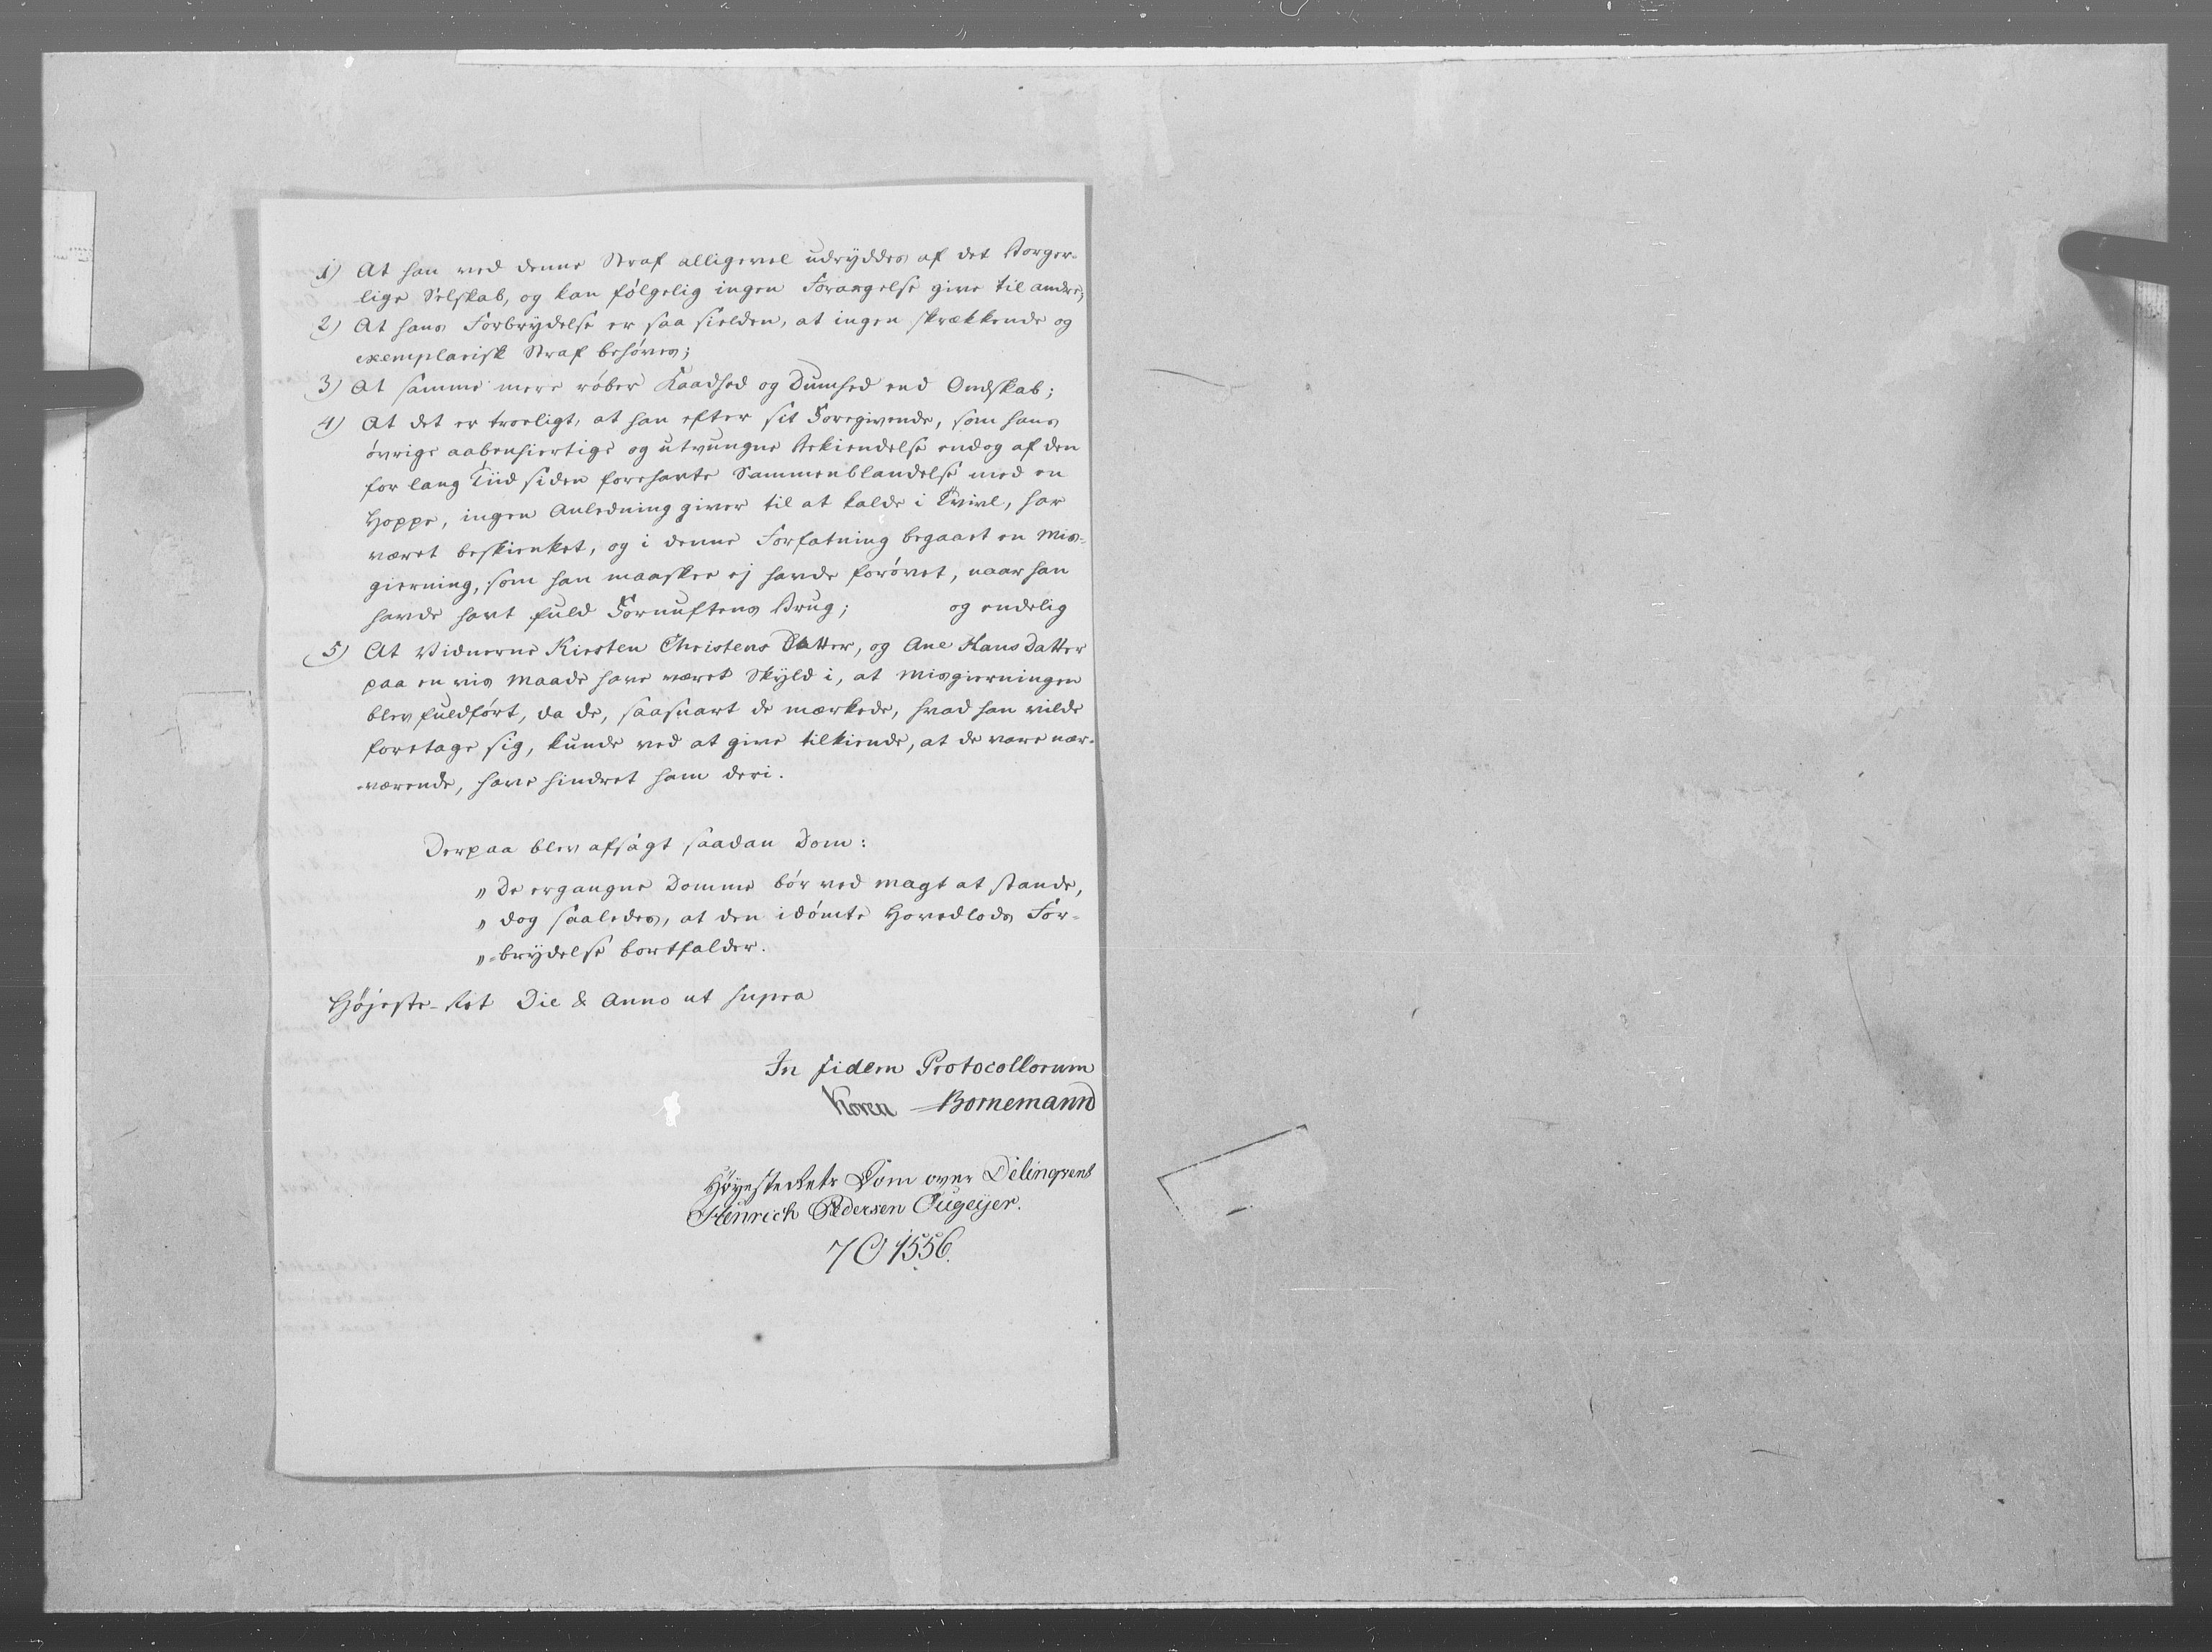 1) At han ved denne Straf alligevel udryddes af det Borger-
lige Selskab, og kan følgelig ingen Forargelse give til andre;
2) At hans Forbrydelse er saa sielden, at ingen skrækkende og
exemplarisk Straf behøves;
3) At samme mere røber Kaadhed og Dumhed end Ondskab;
4) At det er troeligt, at han efter sit Foregivende, som hans
øvrige aabenhiertige og utvungne Bekiendelse endog af den
for lang Tiid siden forehavte Sammenblandelse med en
Hoppe, ingen Anledning giver til at kalde i Tvivl, har
været beskienket, og i denne Forfatning begaaet en Mis-
gierning, som han maaskee ej havde forøvet, naar han
havde havt fuld Fornuftens Brug; og endelig
5) At Vidnerne Kirsten Christens Datter, og Ane Hans Datter
paa en vis Maade have været Skyld i, at Misgierningen
blev fuldført, da de, saasnart de mærkede, hvad han vilde
foretage sig, kunde ved at give tilkiende, at de vare nær-
-værende, have hindret ham deri.
Derpaa blev afsagt saadan Dom:
„ De ergangne Domme bør ved Magt at stande,
„ dog saaledes, at den idømte Hovedlods For-
„ -brydelse bortfalder.
Højeste-Ret Die & Anno ut supra
In fidem Protocollorum
Koren Bornemann
Høyeste Rets Dom over Delinqvent
Hinrich Pedersen
7 O 1556.